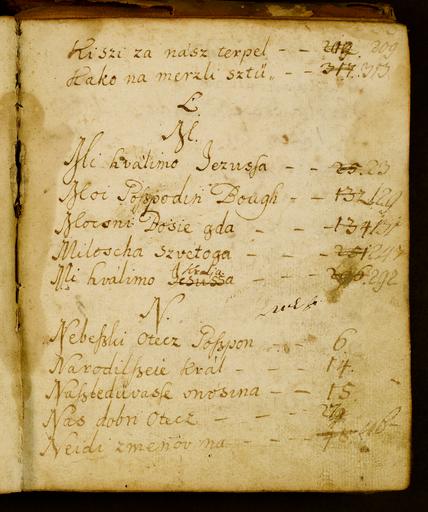 Ki szi za nasz terpel - - 209 209
Kako na merzli sztü„ - - 317. 313
L
M.
Mi hvalimo Jezussa - - 25. 23
Moi Poſzpodin Bough - - 132 129
Mocsni Bosie gda - - 134 131
Miloscha szvetoga - - 251 247
Mi hvalimo Jesussa Krala - - 296. 292
N.
Nebeſzki Otecz Poſzpon - - 6.
Narodilſzeie Král - - 14.
Naſzleduvasse mnosina - - 15
Nas dobri Otecz - - - 29
Neidi zmenov na - - 78